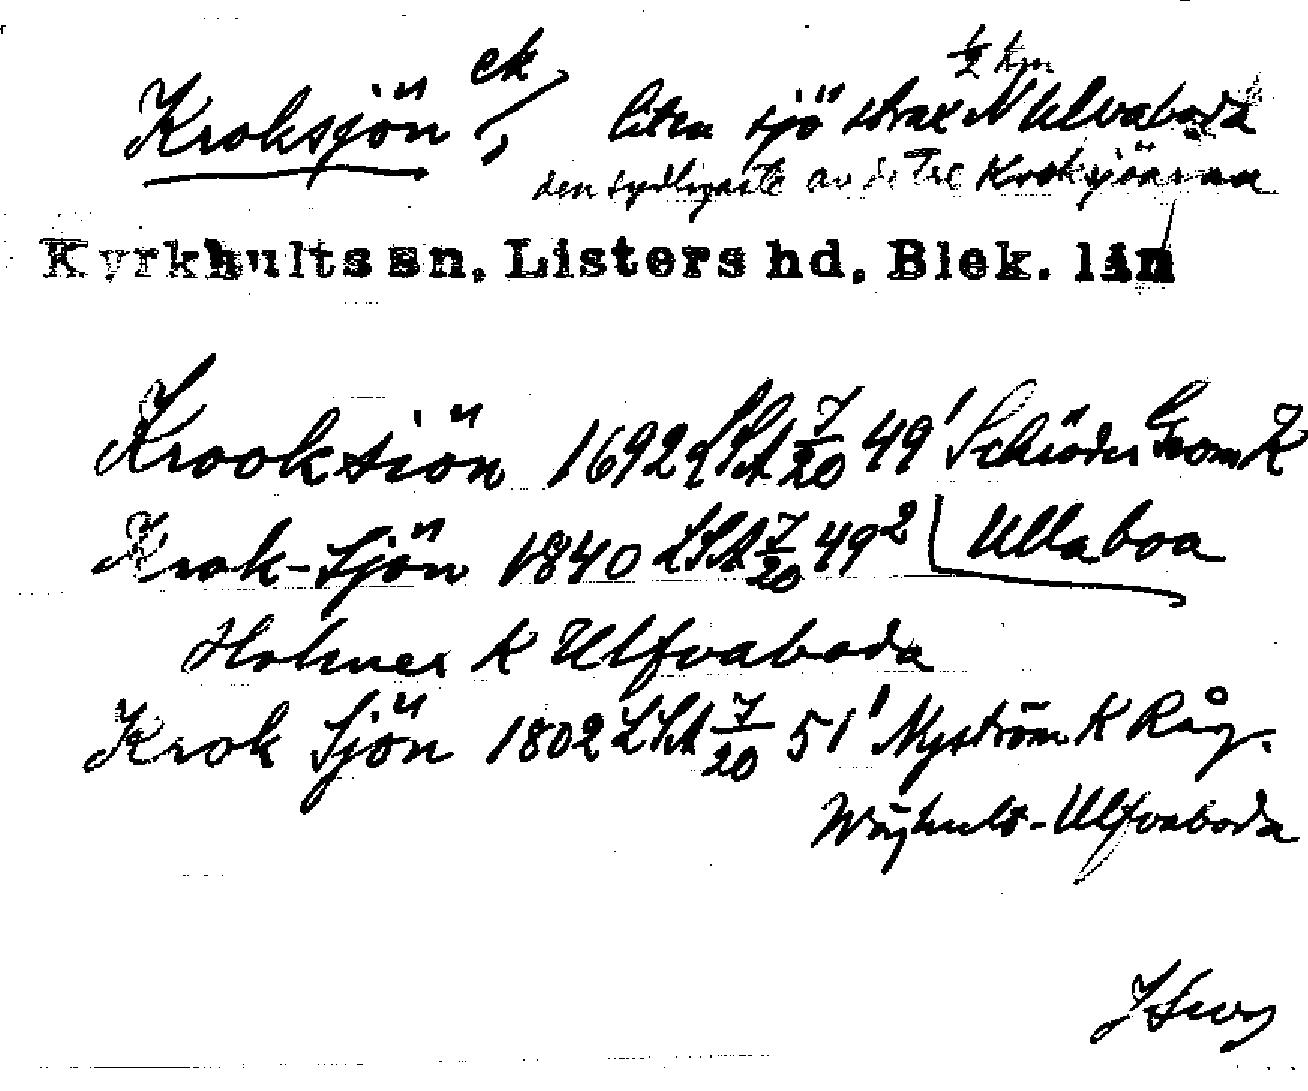 Kroksjön ek, liten sjö strax N Ulvaboda
½ km
den sydligaste av de tre Kroksjöarna
Kyrkhults sn, Listers hd, Blek. län
Krooksiön 1692 LSA 7/20 49¹ Schiöder Geom K
Krok-Sjön 1840 LSA 7/20 49² Ullaboa
K Ulfvaboda
Krok Sjön 1802 LSA 7/20 51¹ Nyström K Råg.
-Ulfvaboda